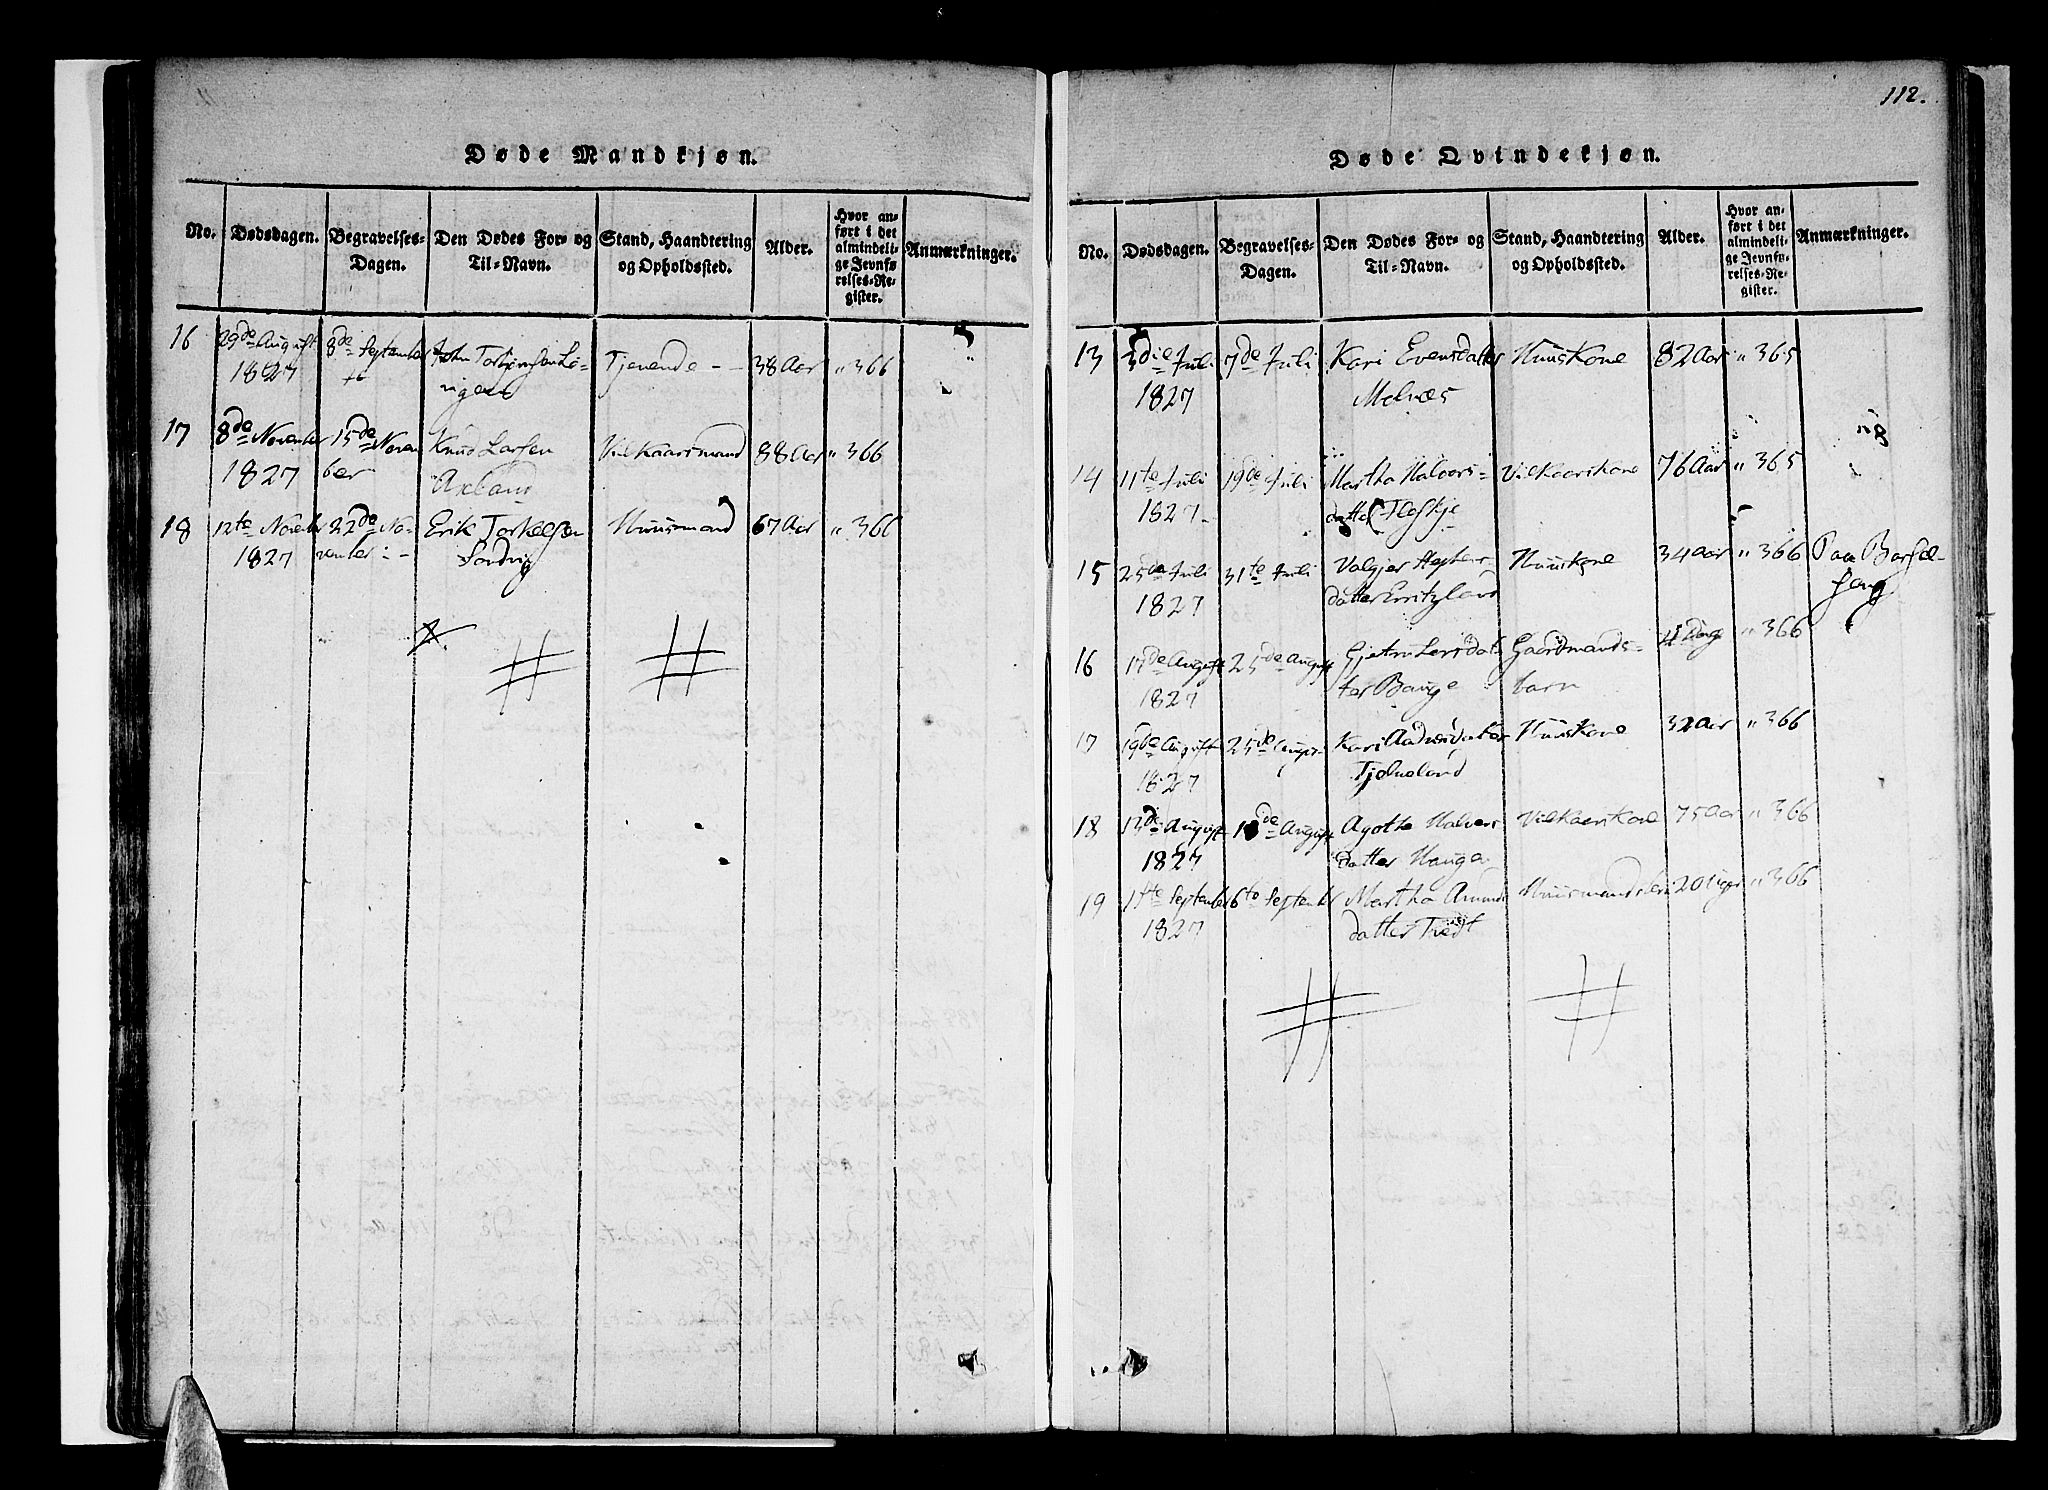 112.
Døde Mandkjøn.
No. Dødsdagen. Begravelses-Dagen. Den Dødes For- og Til-Navn. Stand, Haandtering og Opholdssted. Alder. Hvor anført i det almindelige Jevnførelses-Register. Anmærkninger.
16 29de August 8de September John Tjenende - - 38 Aar " 366
1827
17 8de November 15de Novem Knud Larsen Vilkaarsmand 88 Aar " 366
1827 ber Axland
18 12te Novembr 22de No- Erik Torkelsen Huusmand 67 Aar " 366
1827 vember :- Sandvig
Døde Qvindekjøn.
No. Dødsdagen. Begravelses-Dagen. Den Dødes For- og Til-Navn. Stand, Haandtering og Opholdssted. Alder. Hvor anført i det almindelige Jevnførelses-Register. Anmærkninger.
13 3die Juli 7de Juli Kari Evensdatter Huuskone 82 Aar " 365
1827 Melnæs
14 11te Juli 19de Juli Martha Halvors- Vilkaarskone 76 Aar " 365
1827 datter Floskje
15 25de Juli 31te Juli Valgjer Huuskone 34 Aar " 366 Paa Barsel-
1827 datter Seng
16 17de August 25de August Larsdat Gaardmands- " 366
1827 ter Bauge barn
17 19de August 25de August Kari Huuskone 32 Aar " 366
1827 Tjelueland
18 13de August 18de August Agothe Halvors Vilkaarskone 75 Aar " 366
1827 datter Haugen
19 September 6te September Martha Amunds 20 Uger " 366
1827 datter Tvedt